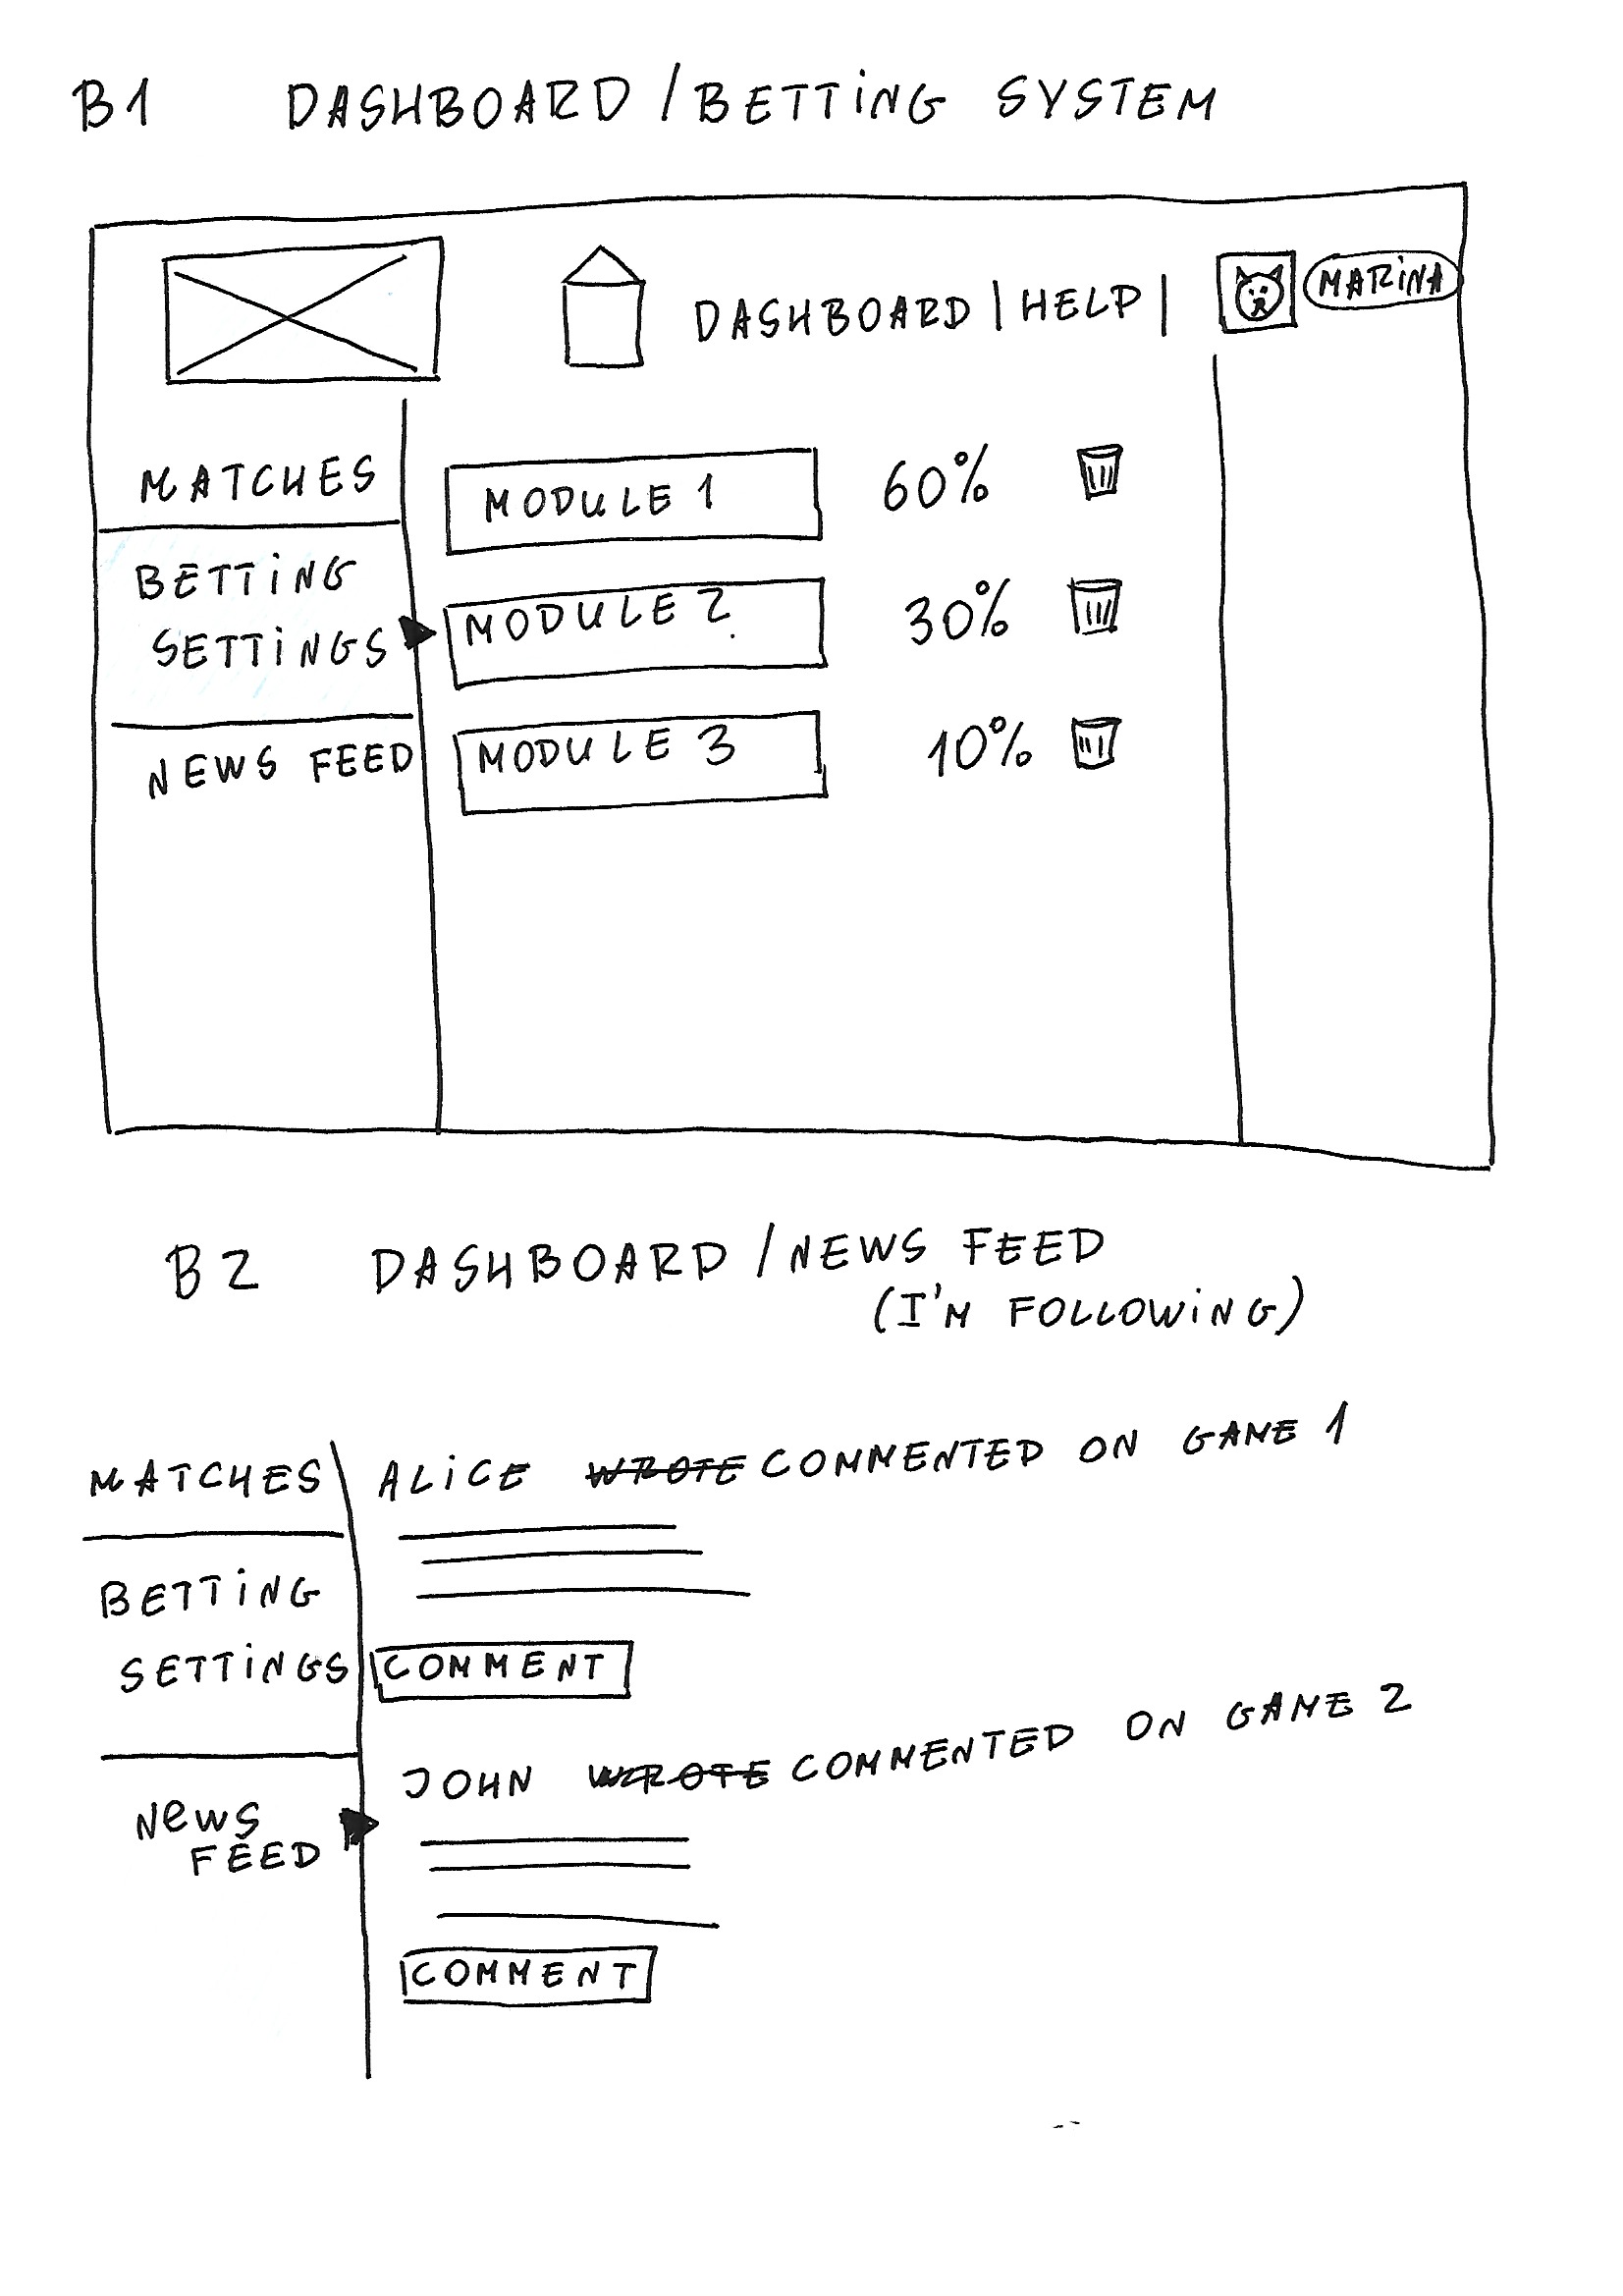 B1 DASHBOARD / BETTING SYSTEM
DASHBOARD | HELP | MARINA
MATCHES
BETTING
SETTINGS
NEWS FEED
MODULE 1 60%
MODULE 2 30%
MODULE 3 10%
B2 DASHBOARD / NEWS FEED
(I'M FOLLOWING)
MATCHES
BETTING
SETTINGS
NEWS
FEED
ALICE WROTE COMMENTED ON GAME 1
COMMENT
JOHN WROTE COMMENTED ON GAME 2
COMMENT